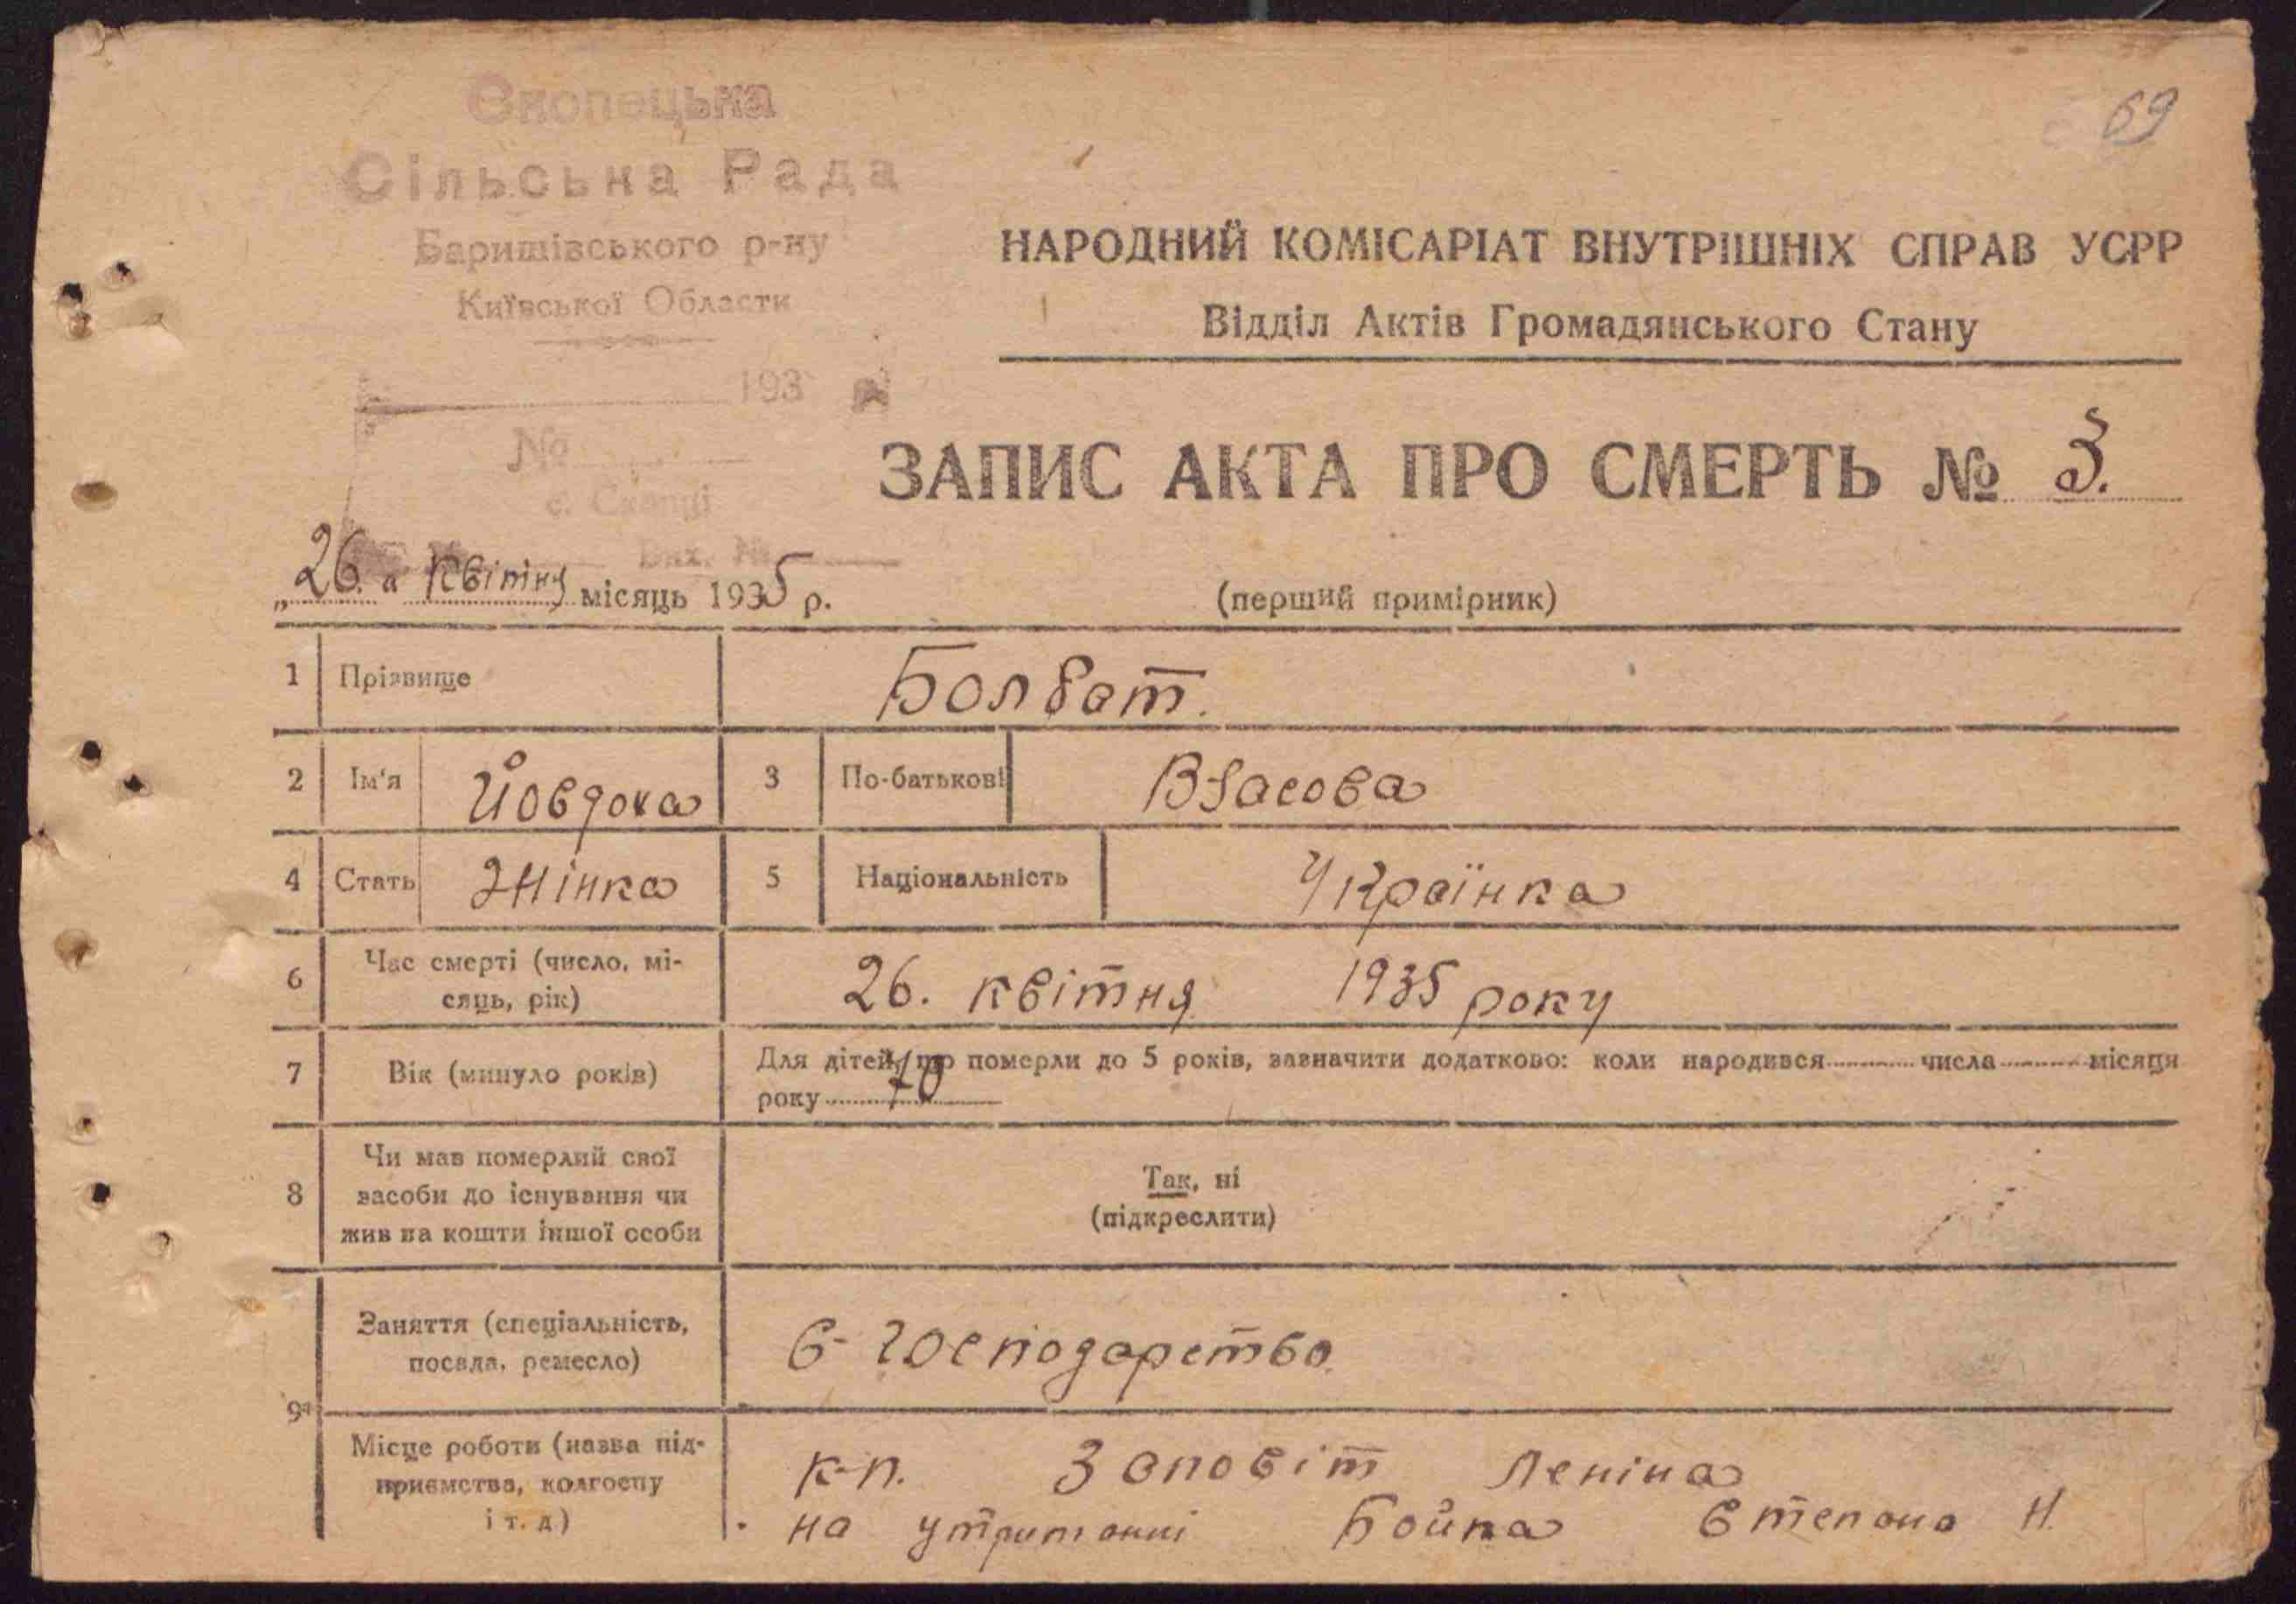 Скопецька
Сільська Рада
Баришівського р-ну
Київської Области
193
№
с. Скопці
Вих. №
69
НАРОДНИЙ КОМІСАРІАТ ВНУТРІШНІХ СПРАВ УСРР
Відділ Актів Громадянського Стану
ЗАПИС АКТА ПРО СМЕРТЬ № 3.
„26. " Квітня місяць 1935 р.
(перший примірник)
1 Прізвище Болбат.
2 Ім'я Йовдоха 3 По-батькові Власова
4 Стать Жінка 5 Національність Українка
6 Час смерті (число, мі-
сяць, рік) 26. квітня 1935 року
7 Вік (минуло років) Для дітей, що померли до 5 років, зазначити додатково: коли народився числа місяця
року 70
8 Чи мав померлий свої
засоби до існування чи
жив на кошти іншої особи
Так, ні
(підкреслити)
9 Заняття (спеціальність,
посада, ремесло) С-господарство.
Місце роботи (назва під-
приємства, колгоспу
і т. д)
к-п. Заповіт Леніна
на утриманні Бойка Степана Н.